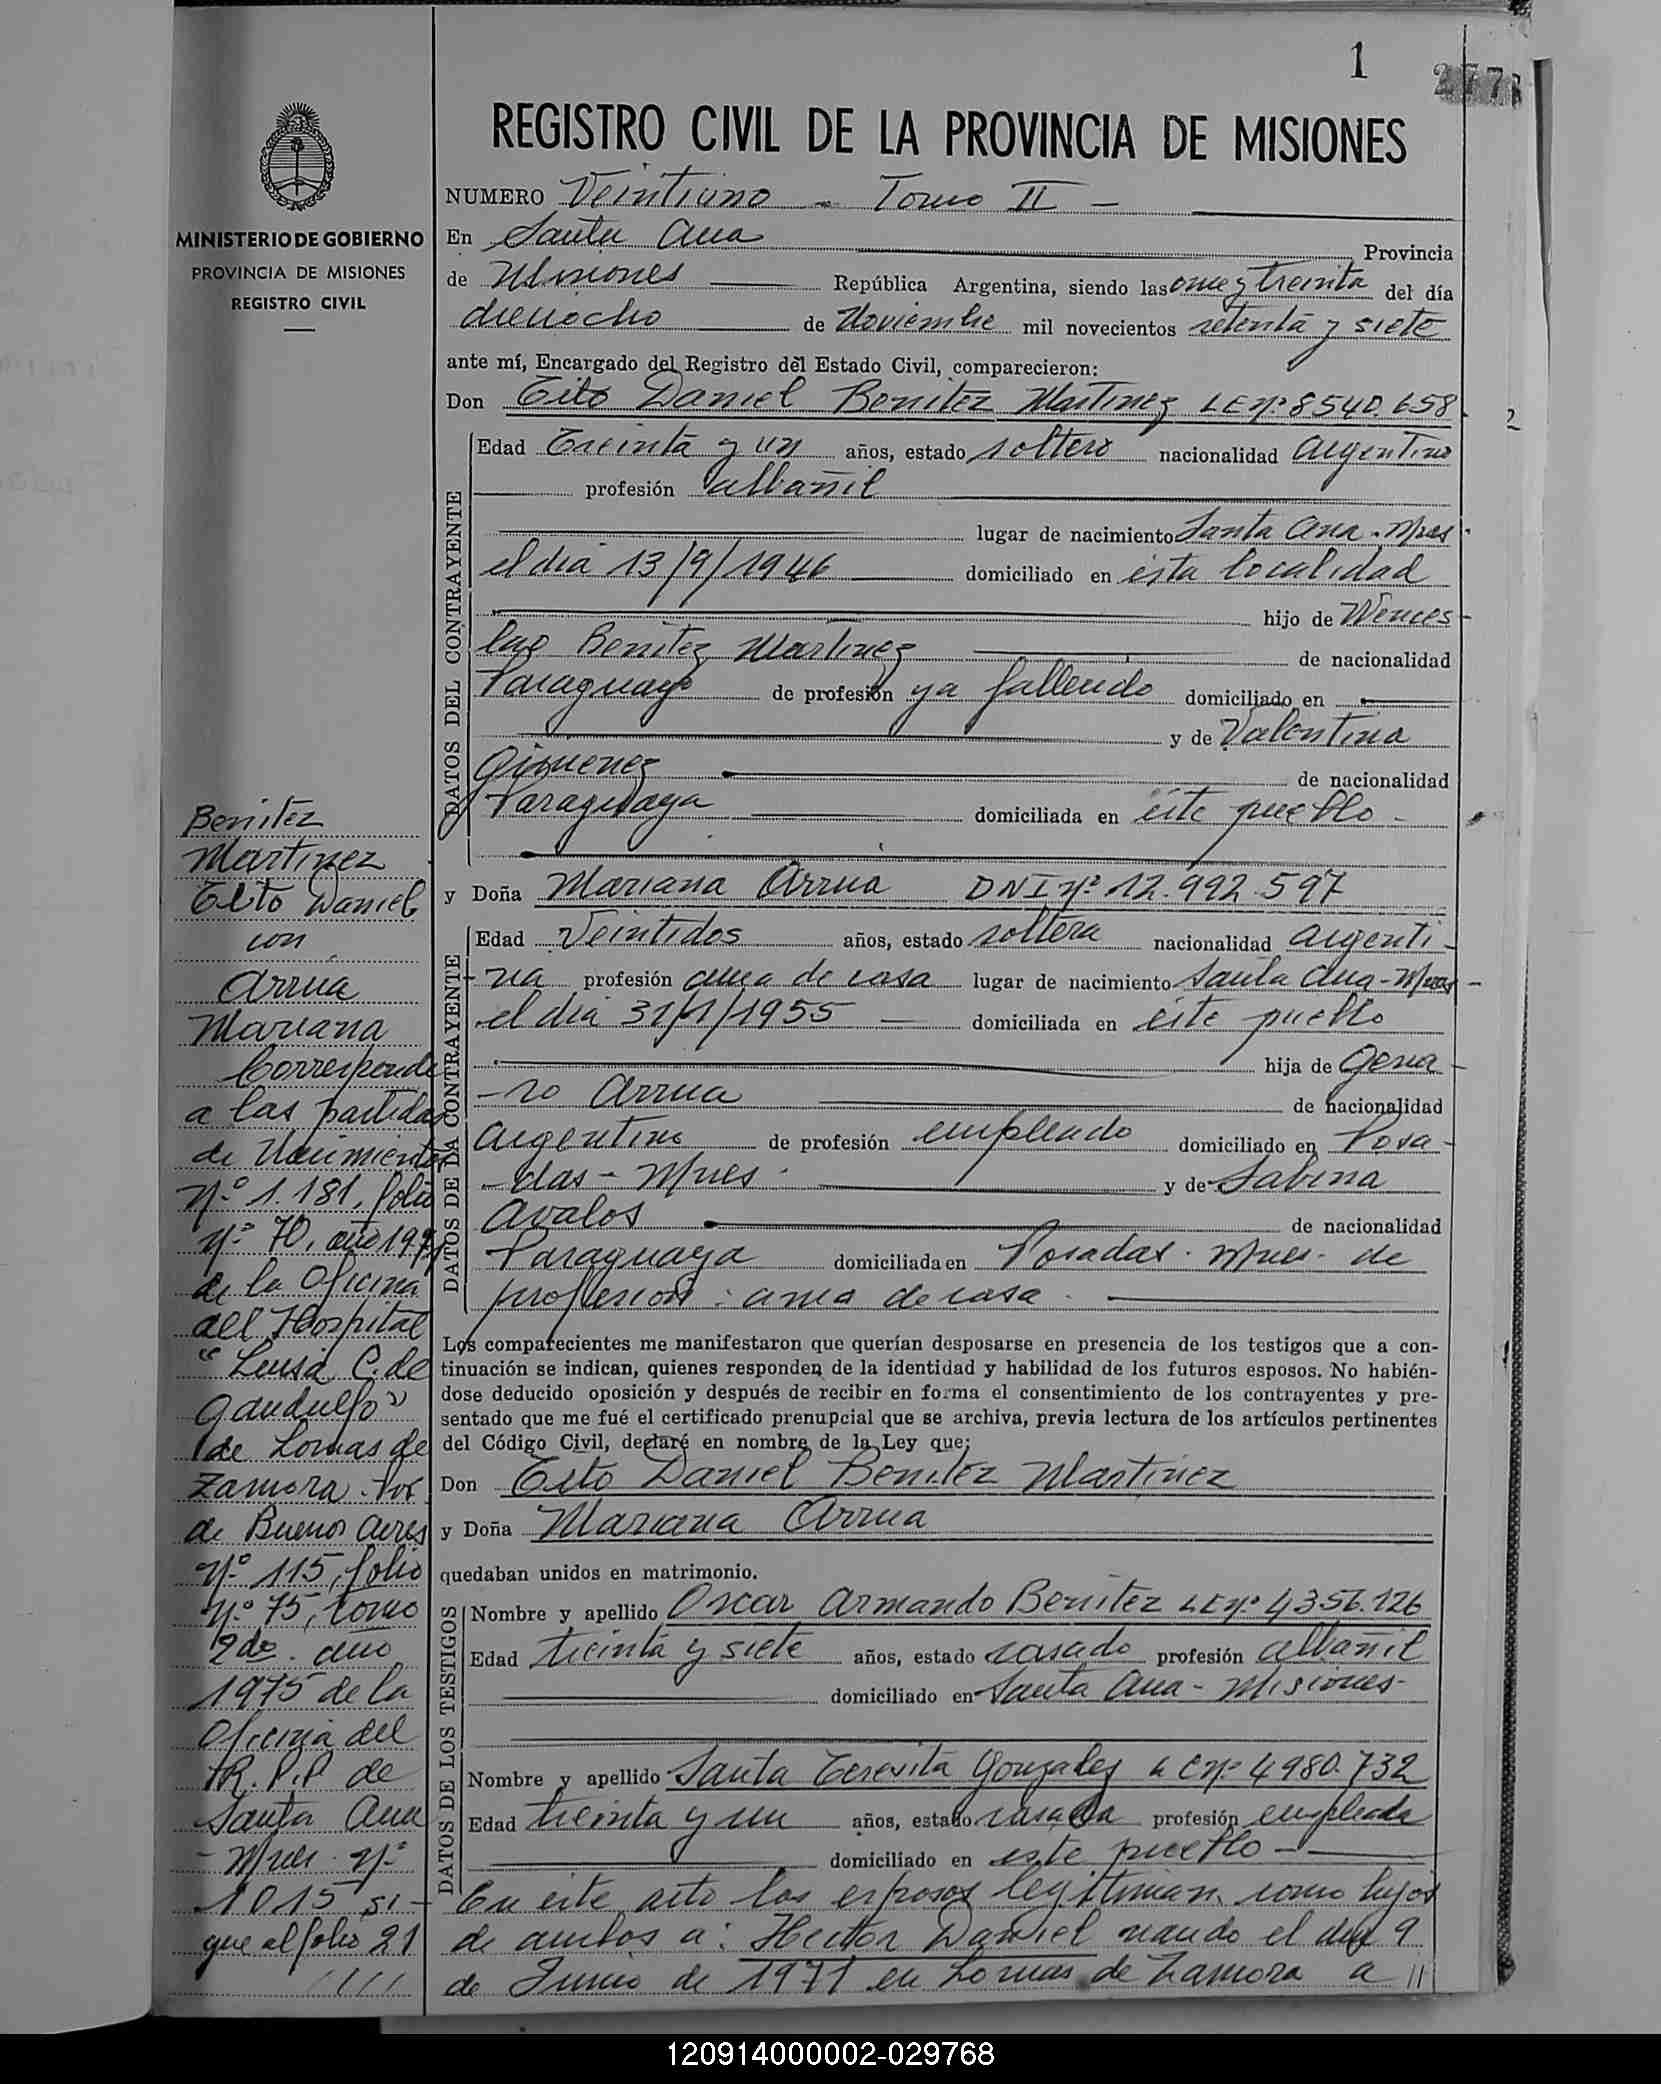 1
277
REGISTRO CIVIL DE LA PROVINCIA DE MISIONES
MINISTERIO DE GOBIERNO
PROVINCIA DE MISIONES
REGISTRO CIVIL
NUMERO Veintiuno - Tomo II -
En Santa Ana Provincia
de Misiones República Argentina, siendo las once y treinta del día
dieciocho de Noviembre mil novecientos setenta y siete
ante mí, Encargado del Registro del Estado Civil, comparecieron:
Don Tito Daniel Benitez Martinez LE Nº 8540.658
DATOS DEL CONTRAYENTE
Edad Treinta y un años, estado soltero nacionalidad argentino
profesión albañil
lugar de nacimiento Santa Ana - Mnes
el dia 13/9/1946 domiciliado en ésta localidad
hijo de Wences
lao Benitez Martinez de nacionalidad
Paraguayo de profesión ya fallecido domiciliado en
y de Valentina
Gimenez de nacionalidad
Paraguaya domiciliada en éste pueblo -
y Doña Mariana Arrua DNI Nº 12.992.597
DATOS DE LA CONTRAYENTE
Edad Veintidos años, estado soltera nacionalidad argenti-
na profesión ama de casa lugar de nacimiento Santa Ana - Mnes -
el dia 31/1/1955 domiciliada en éste pueblo
hija de Gena-
-ro Arrua de nacionalidad
Argentino de profesión empleado domiciliado en Posa-
-das - Mnes - y de Sabina
Avalos de nacionalidad
Paraguaya domiciliada en Posadas - Mnes - de
profesion: ama de casa.
Los comparecientes me manifestaron que querían desposarse en presencia de los testigos que a con-
tinuación se indican, quienes responden de la identidad y habilidad de los futuros esposos. No habién-
dose deducido oposición y después de recibir en forma el consentimiento de los contrayentes y pre-
sentado que me fué el certificado prenupcial que se archiva, previa lectura de los artículos pertinentes
del Código Civil, declaré en nombre de la Ley que:
Don Tito Daniel Benitez Martinez
y Doña Mariana Arrua
quedaban unidos en matrimonio.
DATOS DE LOS TESTIGOS
Nombre y apellido Oscar Armando Benitez LE Nº 4356.126
Edad treinta y siete años, estado casado profesión albañil
domiciliado en Santa Ana - Misiones -
Nombre y apellido Santa Teresita Gonzalez LC Nº 4980.732
Edad treinta y un años, estado casada profesión empleada
domiciliado en este pueblo -
En éste acto los esposos legitiman como hijos
de ambos a: Hector Daniel nacido el dia 9
de Junio de 1971 en Lomas de Zamora a //
Benitez
Martinez
Tito Daniel
con
Arrua
Mariana
Corresponde
a las partidas
de Nacimiento
Nº 1.181, folio
Nº 70, año 1971
de la Oficina
del Hospital
"Luisa C. de
Gandulfo"
de Lomas de
Zamora -
de Buenos Aires
Nº 115, folio
Nº 75, tomo
2do. año
1975 de la
Oficina del
R.P.P de
Santa Ana
- Mnes - Nº
1015 si-
gue al folio 21
////
120914000002-029768